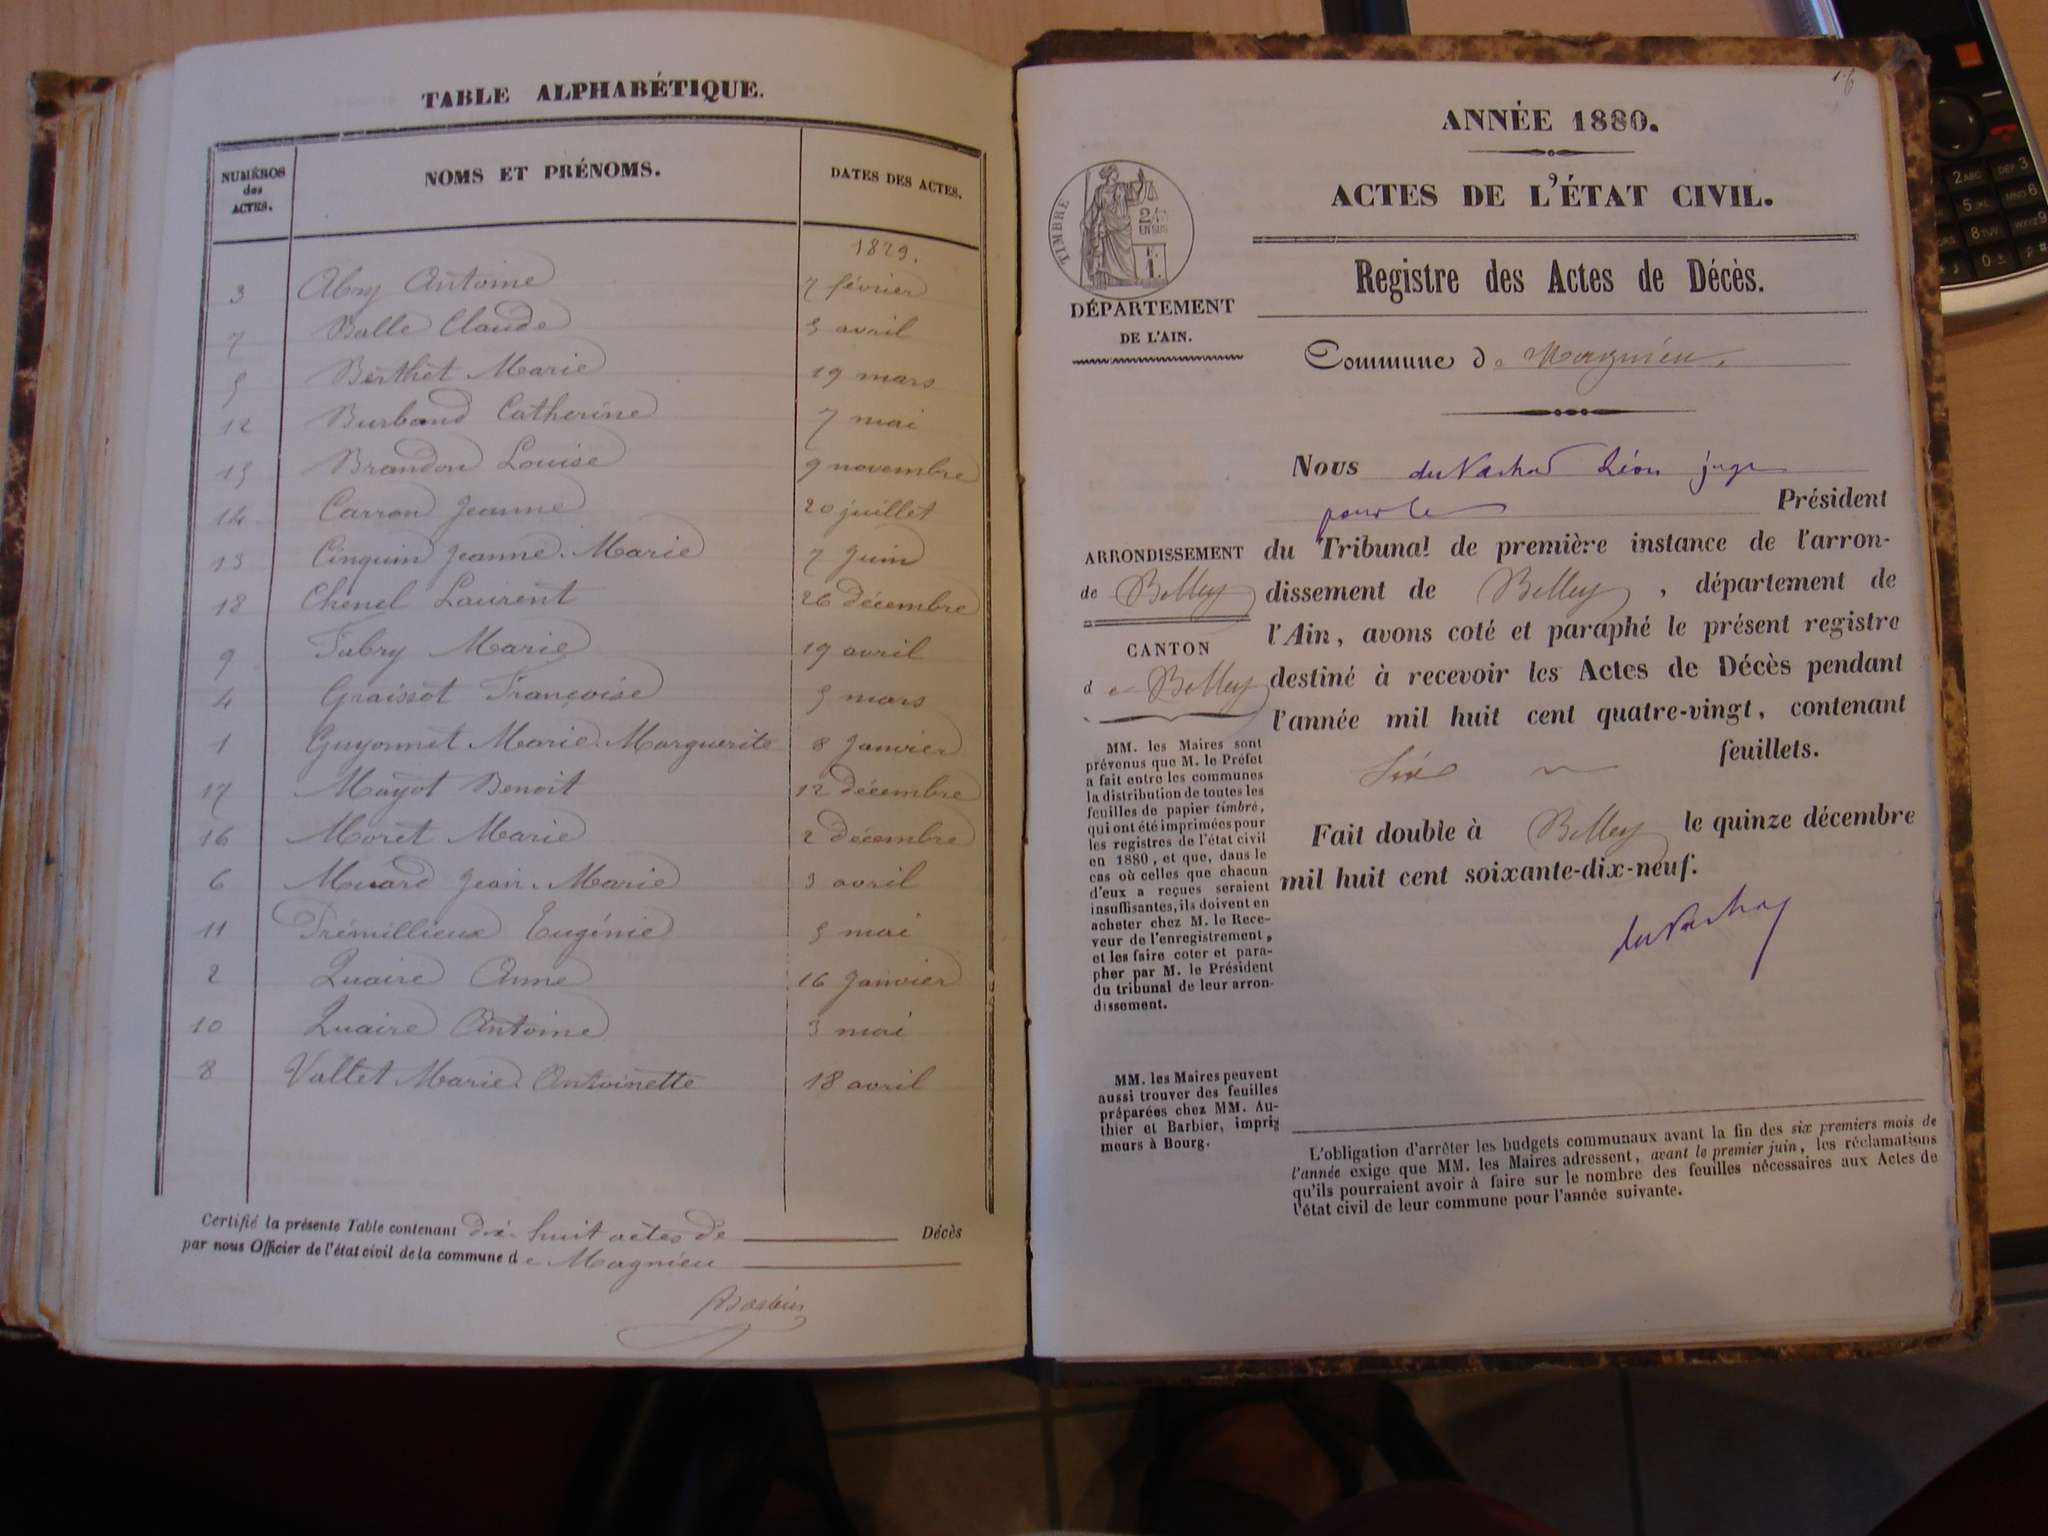 TABLE ALPHABÉTIQUE.
NUMÉROS des ACTES. NOMS ET PRÉNOMS. DATES DES ACTES.
1879.
3 Abry Antoine 7 février
7 Balle Claude 5 avril
5 Berthet Marie 19 mars
12 Burband Catherine 7 mai
15 Brandon Louise 9 novembre
14 Carron Jeanne 20 juillet
13 Cinquin Jeanne Marie 7 Juin
18 Chenel Laurent 26 décembre
9 Fabry Marie 19 avril
4 Graissot Françoise 5 mars
1 Guyonnet Marie Marguerite 8 Janvier
17 Mayot Benoit 12 décembre
16 Moret Marie 2 décembre
6 Muard Jean Marie 3 avril
11 Prémillieux Eugénie 5 mai
2 Quaire Anne 16 Janvier
10 Quaire Antoine 3 mai
8 Vallet Marie Antoinette 18 avril
Certifié la présente Table contenant dix huit actes de Décès
par nous Officier de l'état civil de la commune de Magnieu
1.6
ANNÉE 1880.
ACTES DE L'ÉTAT CIVIL.
Registre des Actes de Décès.
TIMBRE
EN SUS
DÉPARTEMENT
DE L'AIN.
Commune de Magnieu
Nous Léon juge
pour le Président
du Tribunal de première instance de l'arron-
dissement de Belley, département de
l'Ain, avons coté et paraphé le présent registre
destiné à recevoir les Actes de Décès pendant
l'année mil huit cent quatre-vingt, contenant
Six feuillets.
Fait double à Belley le quinze décembre
mil huit cent soixante-dix-neuf.
ARRONDISSEMENT
de Belley
CANTON
de Belley
MM. les Maires sont
prévenus que M. le Préfet
a fait entre les communes
la distribution de toutes les
feuilles de papier timbré,
qui ont été imprimées pour
les registres de l'état civil
en 1880, et que, dans le
cas où celles que chacun
d'eux a reçues seraient
insuffisantes, ils doivent en
acheter chez M. le Rece-
veur de l'enregistrement,
et les faire coter et para-
pher par M. le Président
du tribunal de leur arron-
dissement.
MM. les Maires peuvent
aussi trouver des feuilles
préparées chez MM. Au-
thier et Barbier, impri-
meurs à Bourg.
L'obligation d'arrêter les budgets communaux avant la fin des six premiers mois de
l'année exige que MM. les Maires adressent, avant le premier juin, les réclamations
qu'ils pourraient avoir à faire sur le nombre des feuilles nécessaires aux Actes de
l'état civil de leur commune pour l'année suivante.